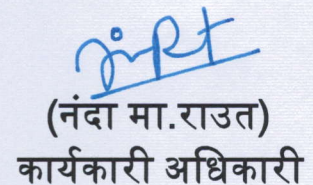 (नंदा मा.राउत)
कार्यकारी अधिकारी